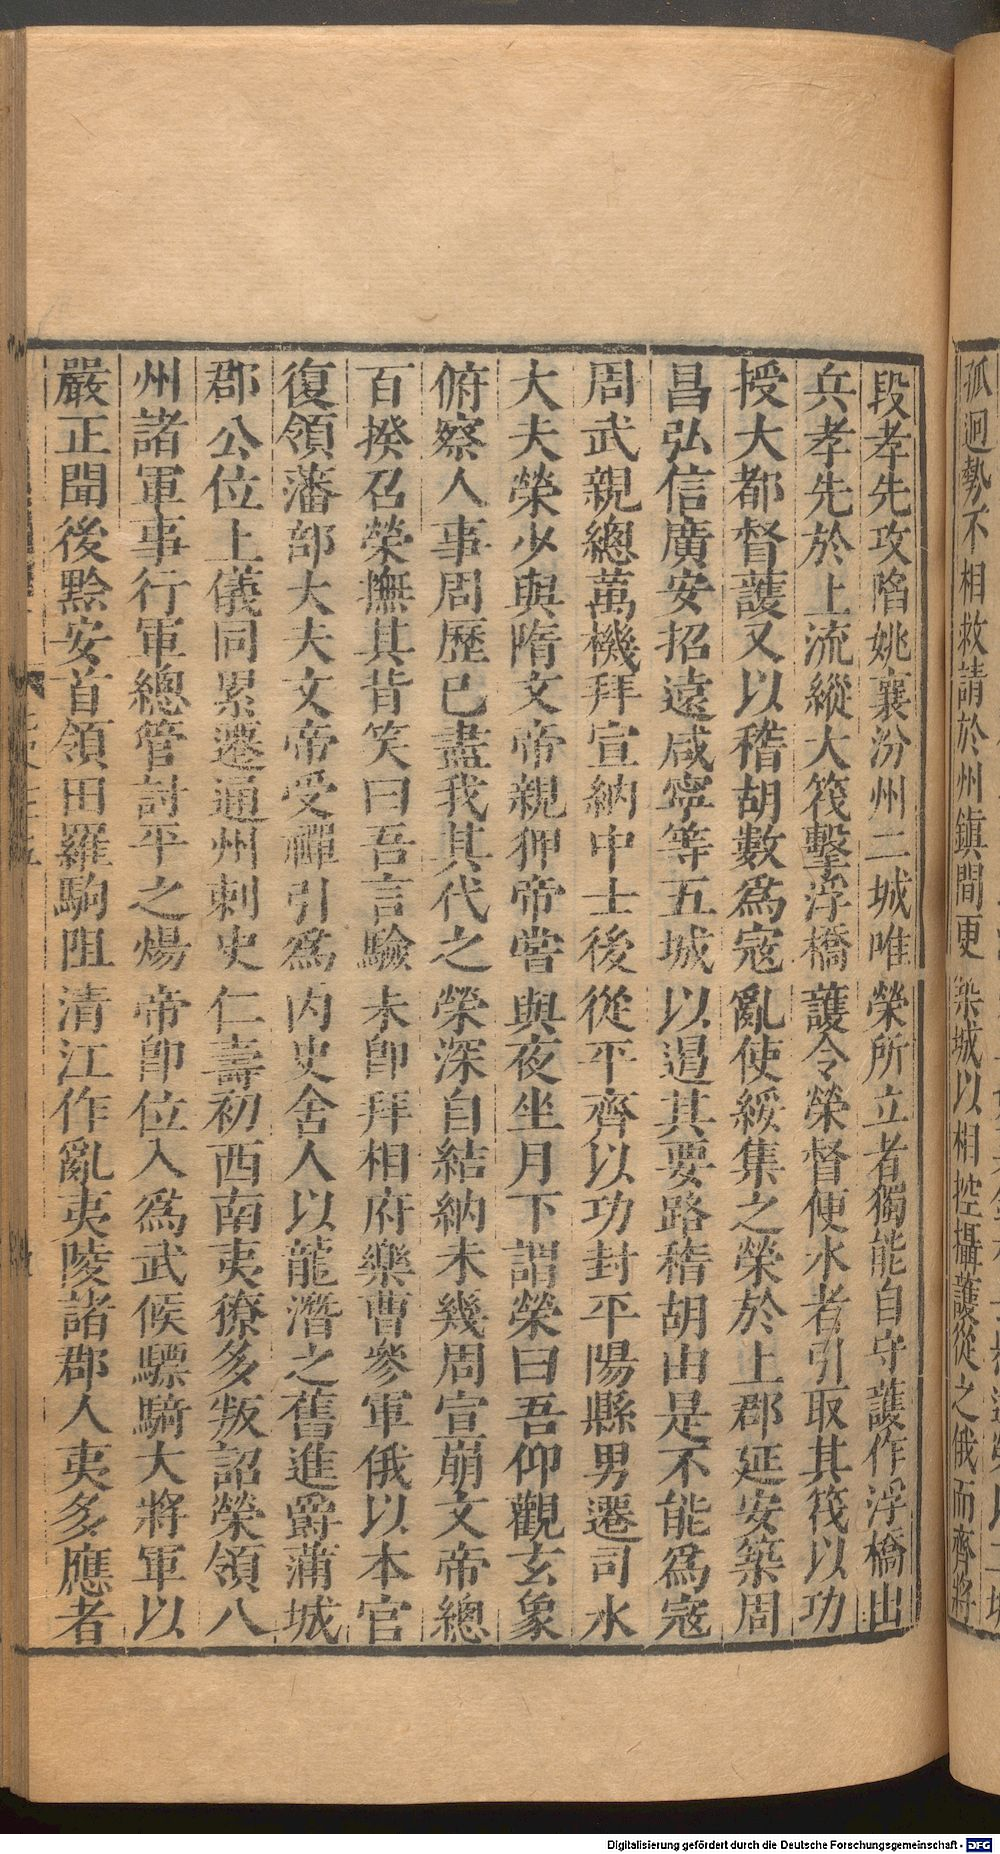 孤迥勢不相救請於州鎮間更築城以相控攝護從之俄而齊將
段孝先攻陷姚襄汾州二城唯榮所立者獨能自守護作浮橋出
兵孝先於上流縱大筏擊浮橋護令榮督便水者引取其筏以功
授大都督護又以稽胡數爲寇亂使綏集之榮於上郡延安築周
昌弘信廣安招遠咸寧等五城以遏其要路稽胡由是不能爲寇
周武親總萬機拜宣納中士後從平齊以功封平陽縣男遷司水
大夫榮少與隋文帝親狎帝嘗與夜坐月下謂榮曰吾仰觀玄象
俯察人事周歷已盡我其代之榮深自結納未幾周宣崩文帝總
百揆召榮撫其背笑曰吾言驗未卽拜相府樂曹參軍俄以本官
復領藩部大夫文帝受禪引爲內史舍人以龍潛之舊進爵蒲城
郡公位上儀同累遷通州刺史仁壽初西南夷獠多叛詔榮領八
州諸軍事行軍總管討平之煬帝卽位入爲武候驃騎大將軍以
嚴正聞後黔安首領田羅駒阻清江作亂夷陵諸郡人夷多應者
Digitalisierung gefördert durch die Deutsche Forschungsgemeinschaft - DFG